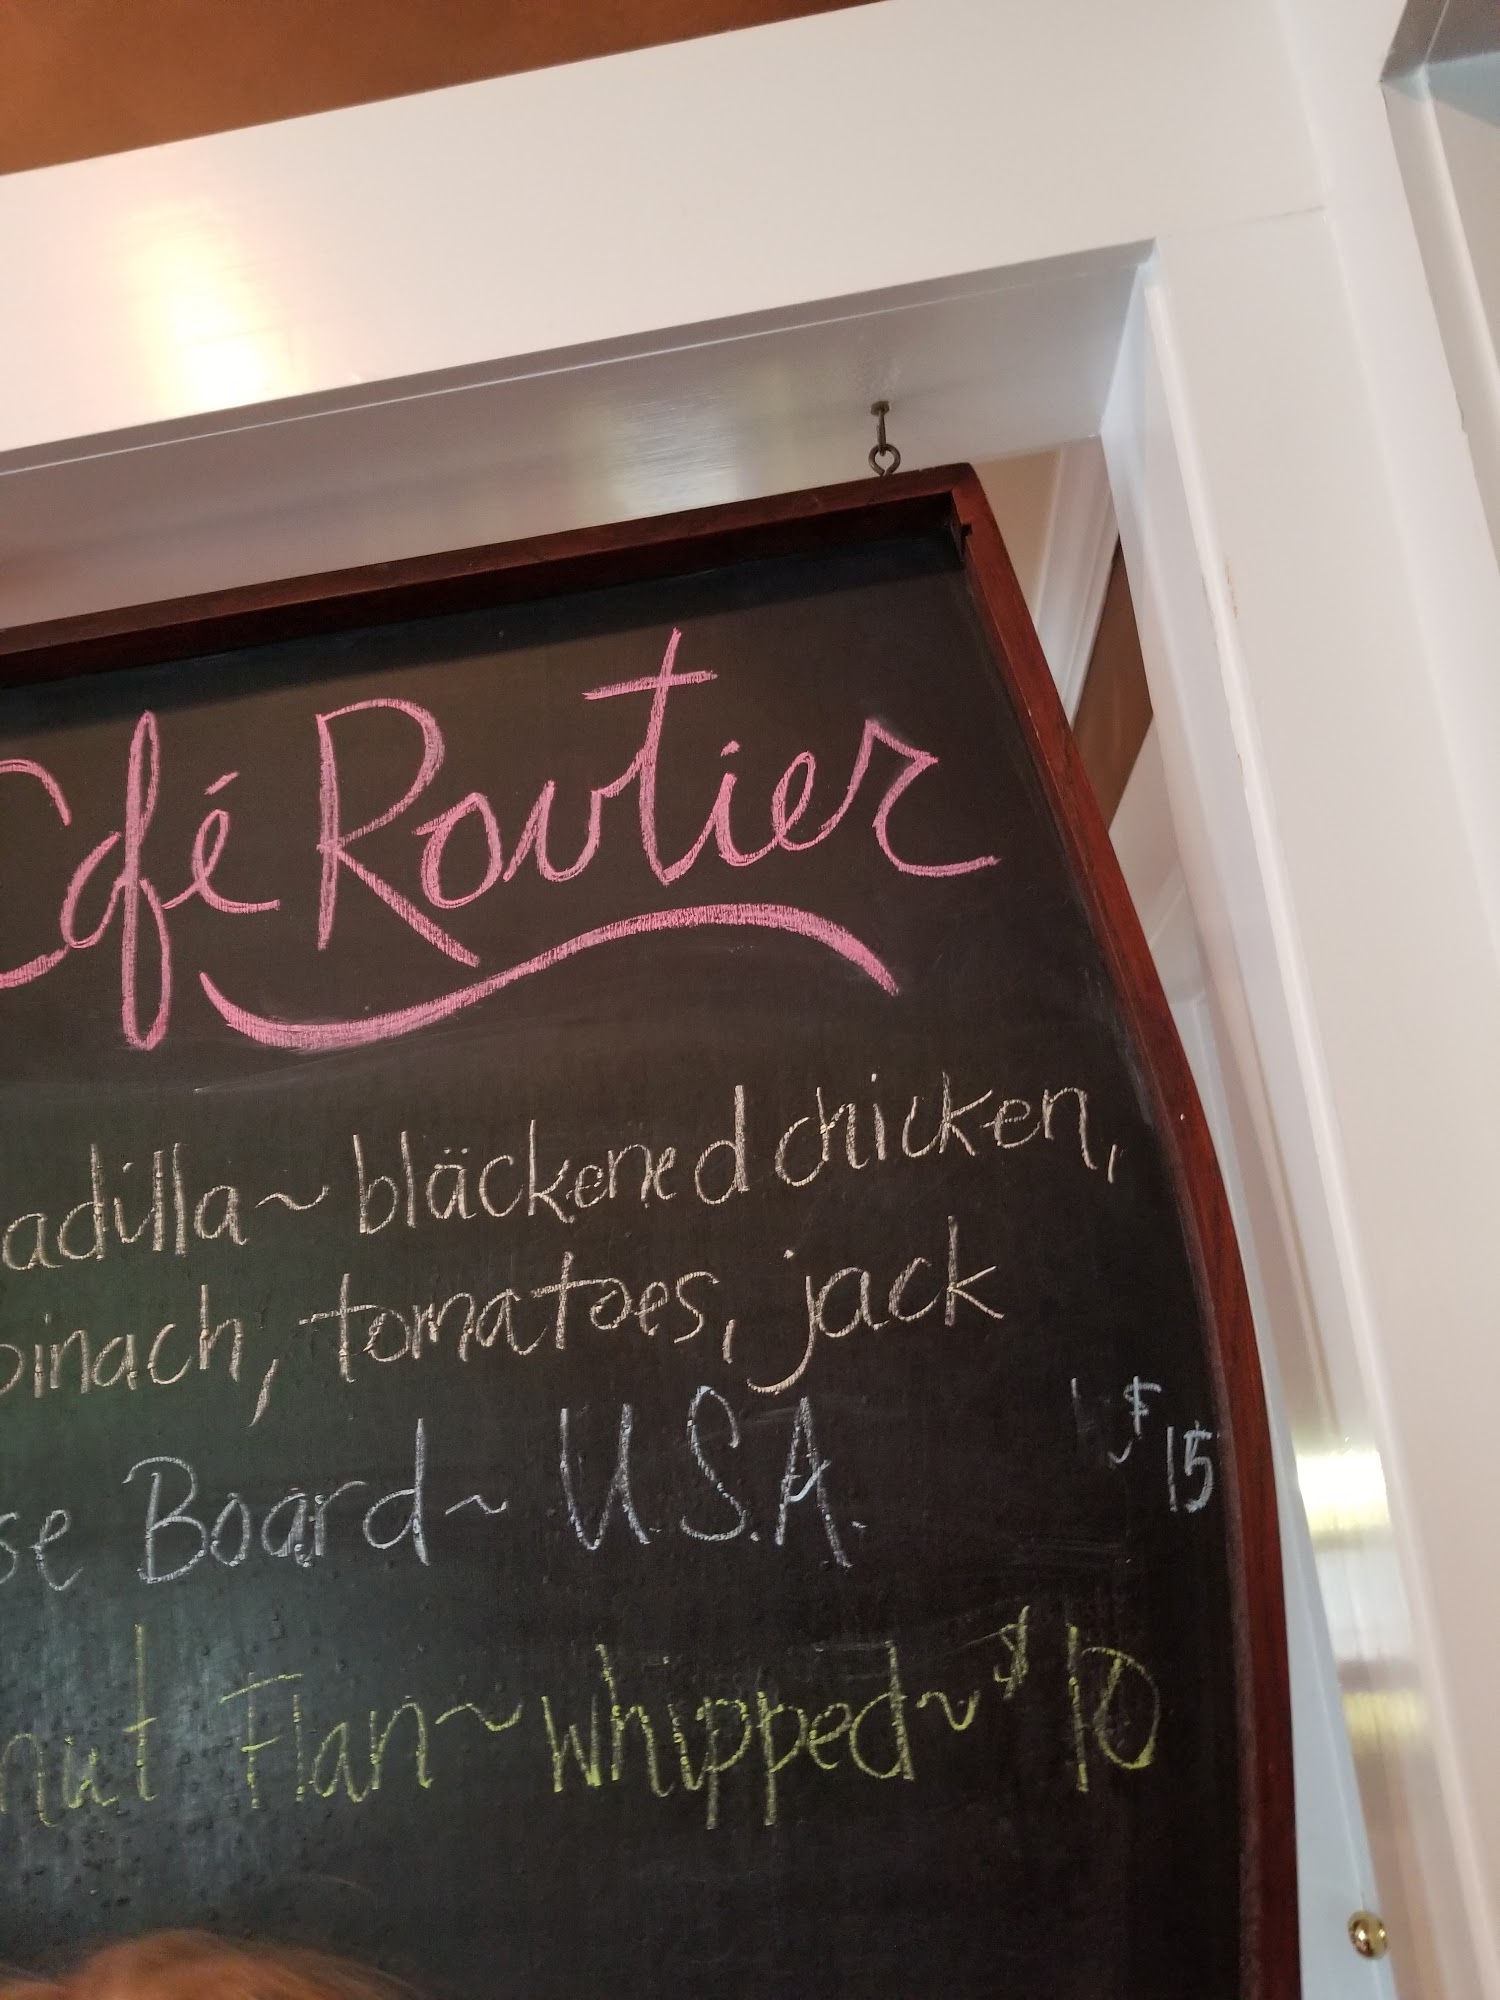 Café Routier
adilla~ bläckened chicken,
pinach, tomatoes, jack
se Board~ U.S.A. $15
nut Flan~whipped~$10